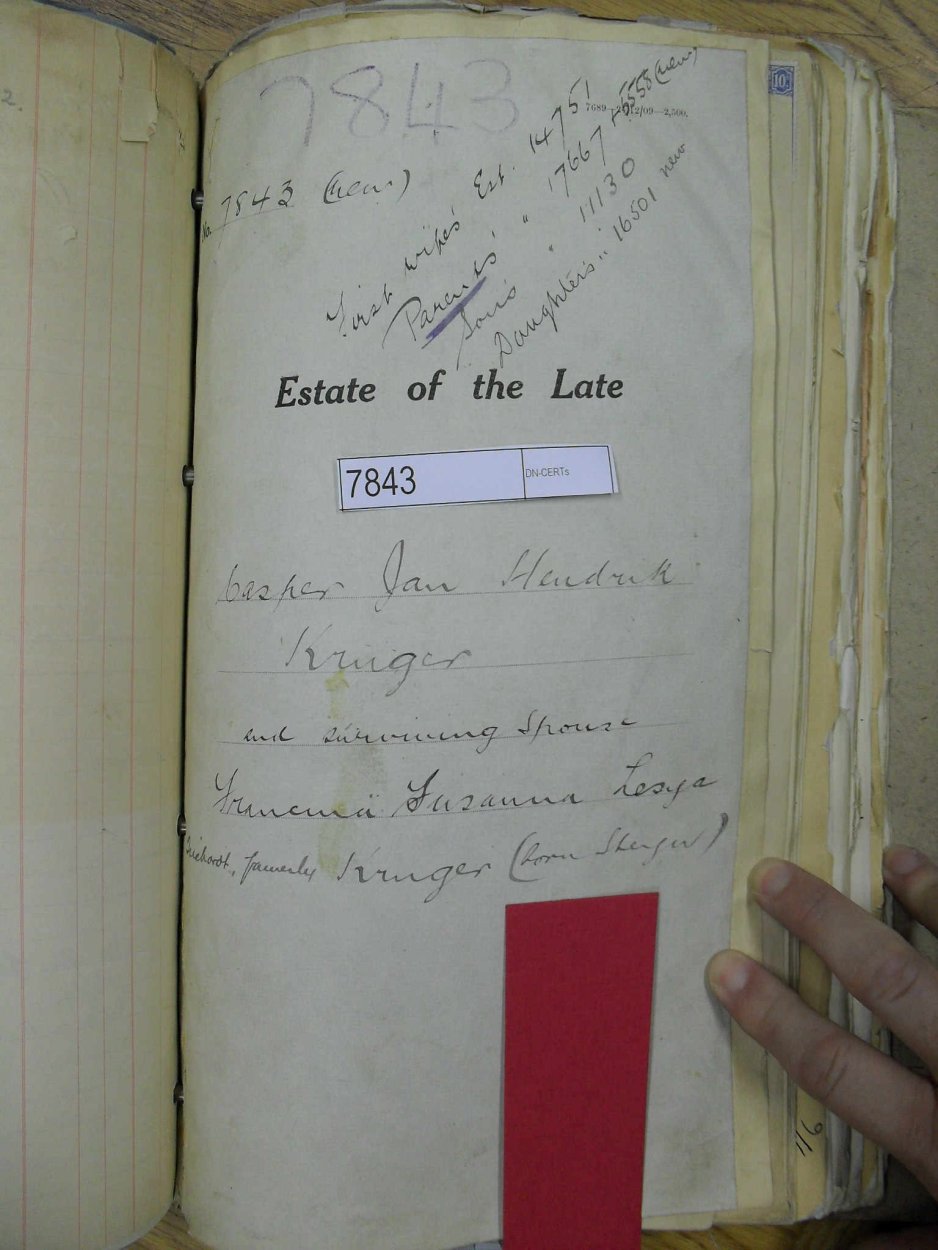 2.
7843
7689—2/12/09—2,500.
No. 7843 (new)
First wife's Est. 14751
Parents' " 17667 + (new)
Son's " 11130
Daughter's " 16501 new
Estate of the Late
7843 DN-CERTs
Casper Jan Hendrik
Kruger
and surviving Spouse
Susanna
formerly Kruger (born
10
116